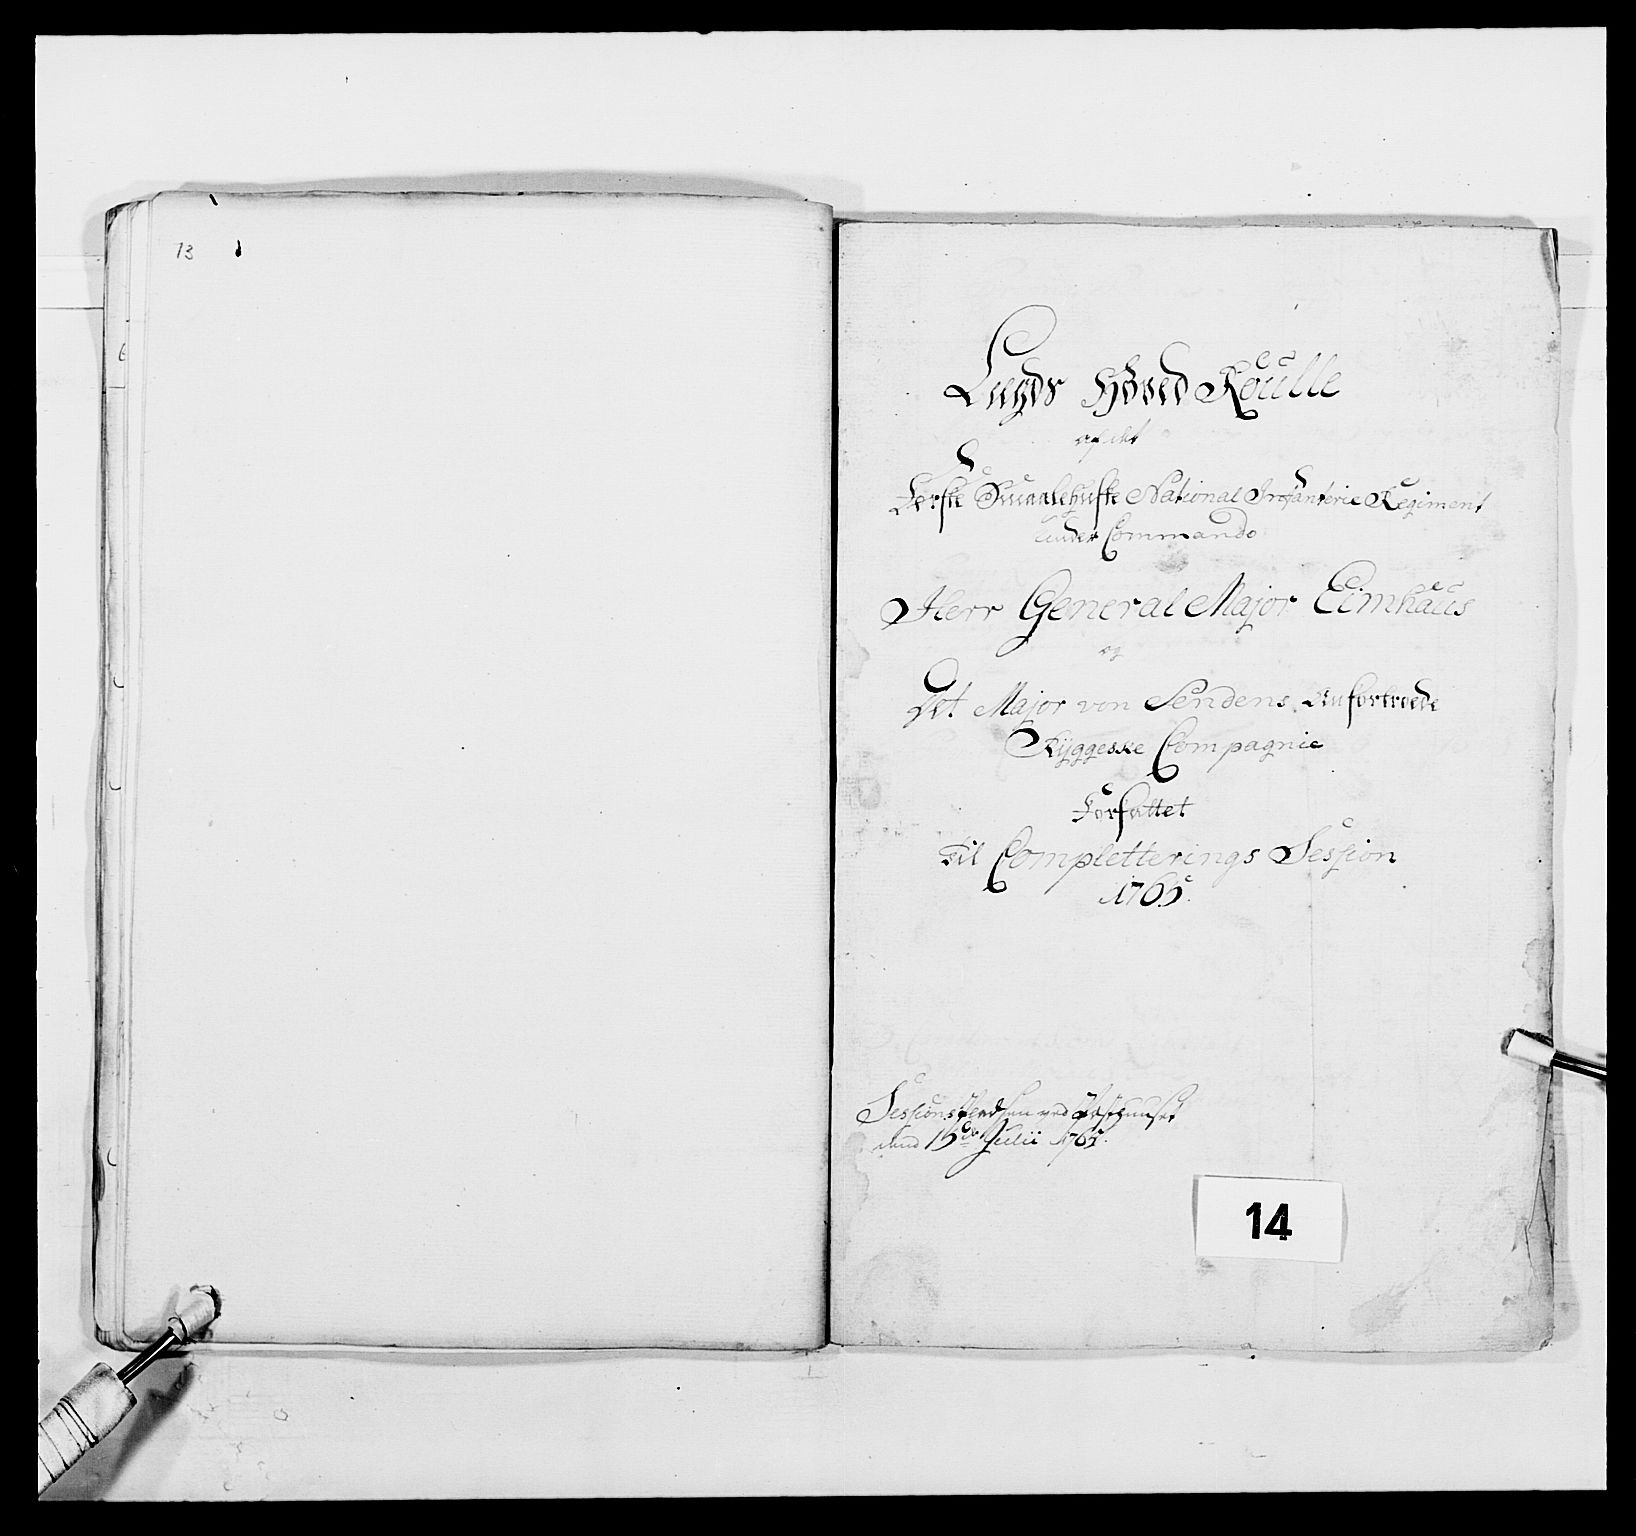 13
Lægds Hoved Roulle
af det
Første Smaalehnske National Infanterie Regiment
under Commando
Herr General Major Eimhaus
og
Det Major von Sendens Anfortroede
Ryggeske Compagnie
Forfattet
til Completterings Session
1765.
Sessions ved
den 15de Julii 1765.
14